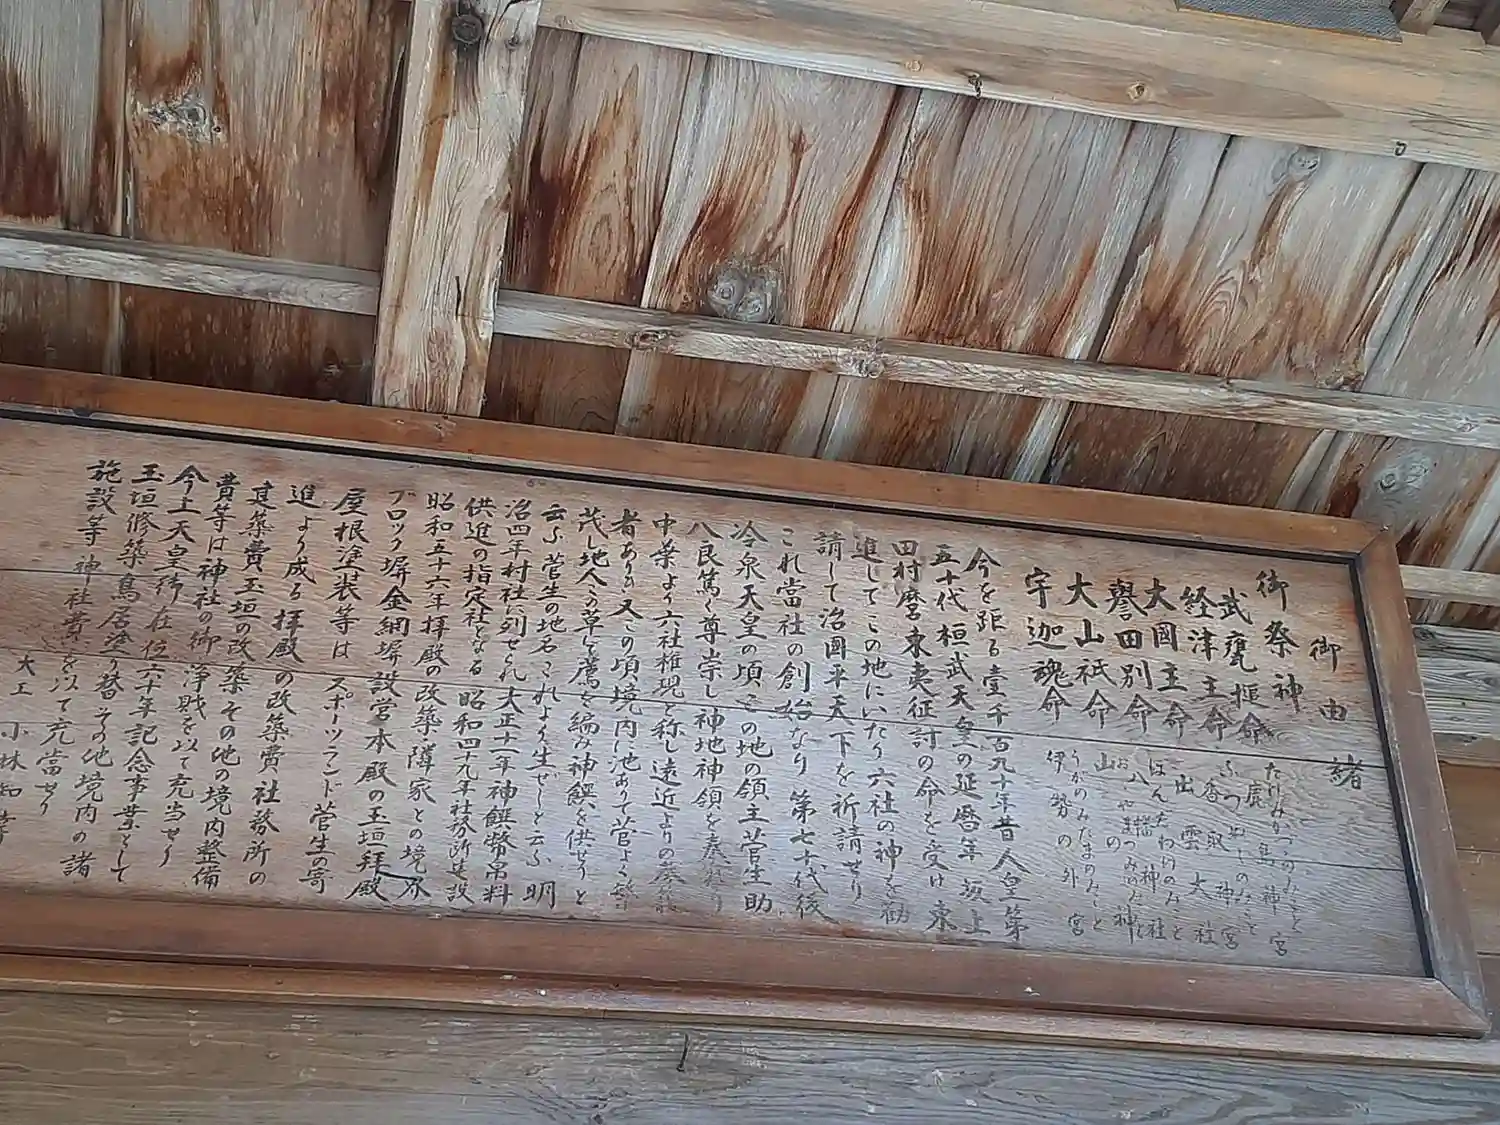 御由緒
御祭神
武甕槌命 たけみかづちのみこと 鹿島神宮
経津主命 ふつぬしのみこと 香取神宮
大国主命 出雲大社
譽田別命 ほんだわけのみこと 八幡神社
大山祇命 おおやまつみのみこと 山の神
宇迦魂命 うがのみたまのみこと 伊勢の外宮
今を距る壹千百九十年昔人皇第
五十代桓武天皇の延暦年坂上
田村麿東夷征討の命を受け東
進してこの地にいたり六社の神を勧
請して治國平天下を祈請せり
これ當社の創始なり第七十代後
冷泉天皇の頃この地の領主菅生助
八良篤く尊崇し神地神領を奉
中葉より六社権現と称し遠近よりの
者ありき又この頃境内に池ありて菅よく繁
茂し地人この草にて薦を編み神饌を供せりと
云ふ菅生の地名これより生ぜしと云ふ明
治四年村社に列せられ大正十一年神饌幣帛料
供進の指定社となる昭和四十九年社務所建設
昭和五十六年拝殿の改築隣家との境界
ブロック塀金網塀設営本殿の玉垣拝殿
屋根塗装等はスポーツランド菅生の寄
進より成る拝殿の改築費社務所の
建築費玉垣の改築その他の境内整備
費等は神社の御浄財を以て充当せり
今上天皇御在位六十年記念事業として
玉垣修築鳥居塗り替その他境内の諸
施設等神社費を以て充當せり
大工 小林